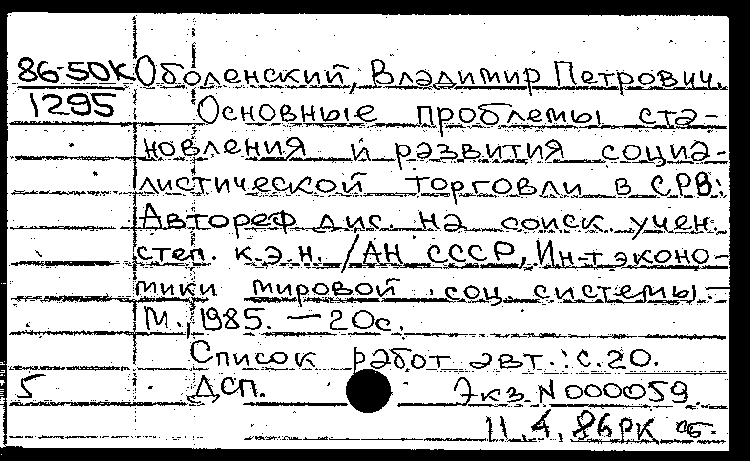 86-50К Оболенский, Владимир Петрович.
1295 Основные проблемы ста-
новления и развития социа-
листической торговли в СРВ:
Автореф дис. на соиск. учен.
степ. к.э.н. /АН СССР, Ин-т эконо-
мики мировой соц. системы.—
М., 1985. — 20с.
Список работ авт.: с.20.
5 ДСП. Экз. N 000059
11.4.86 РК